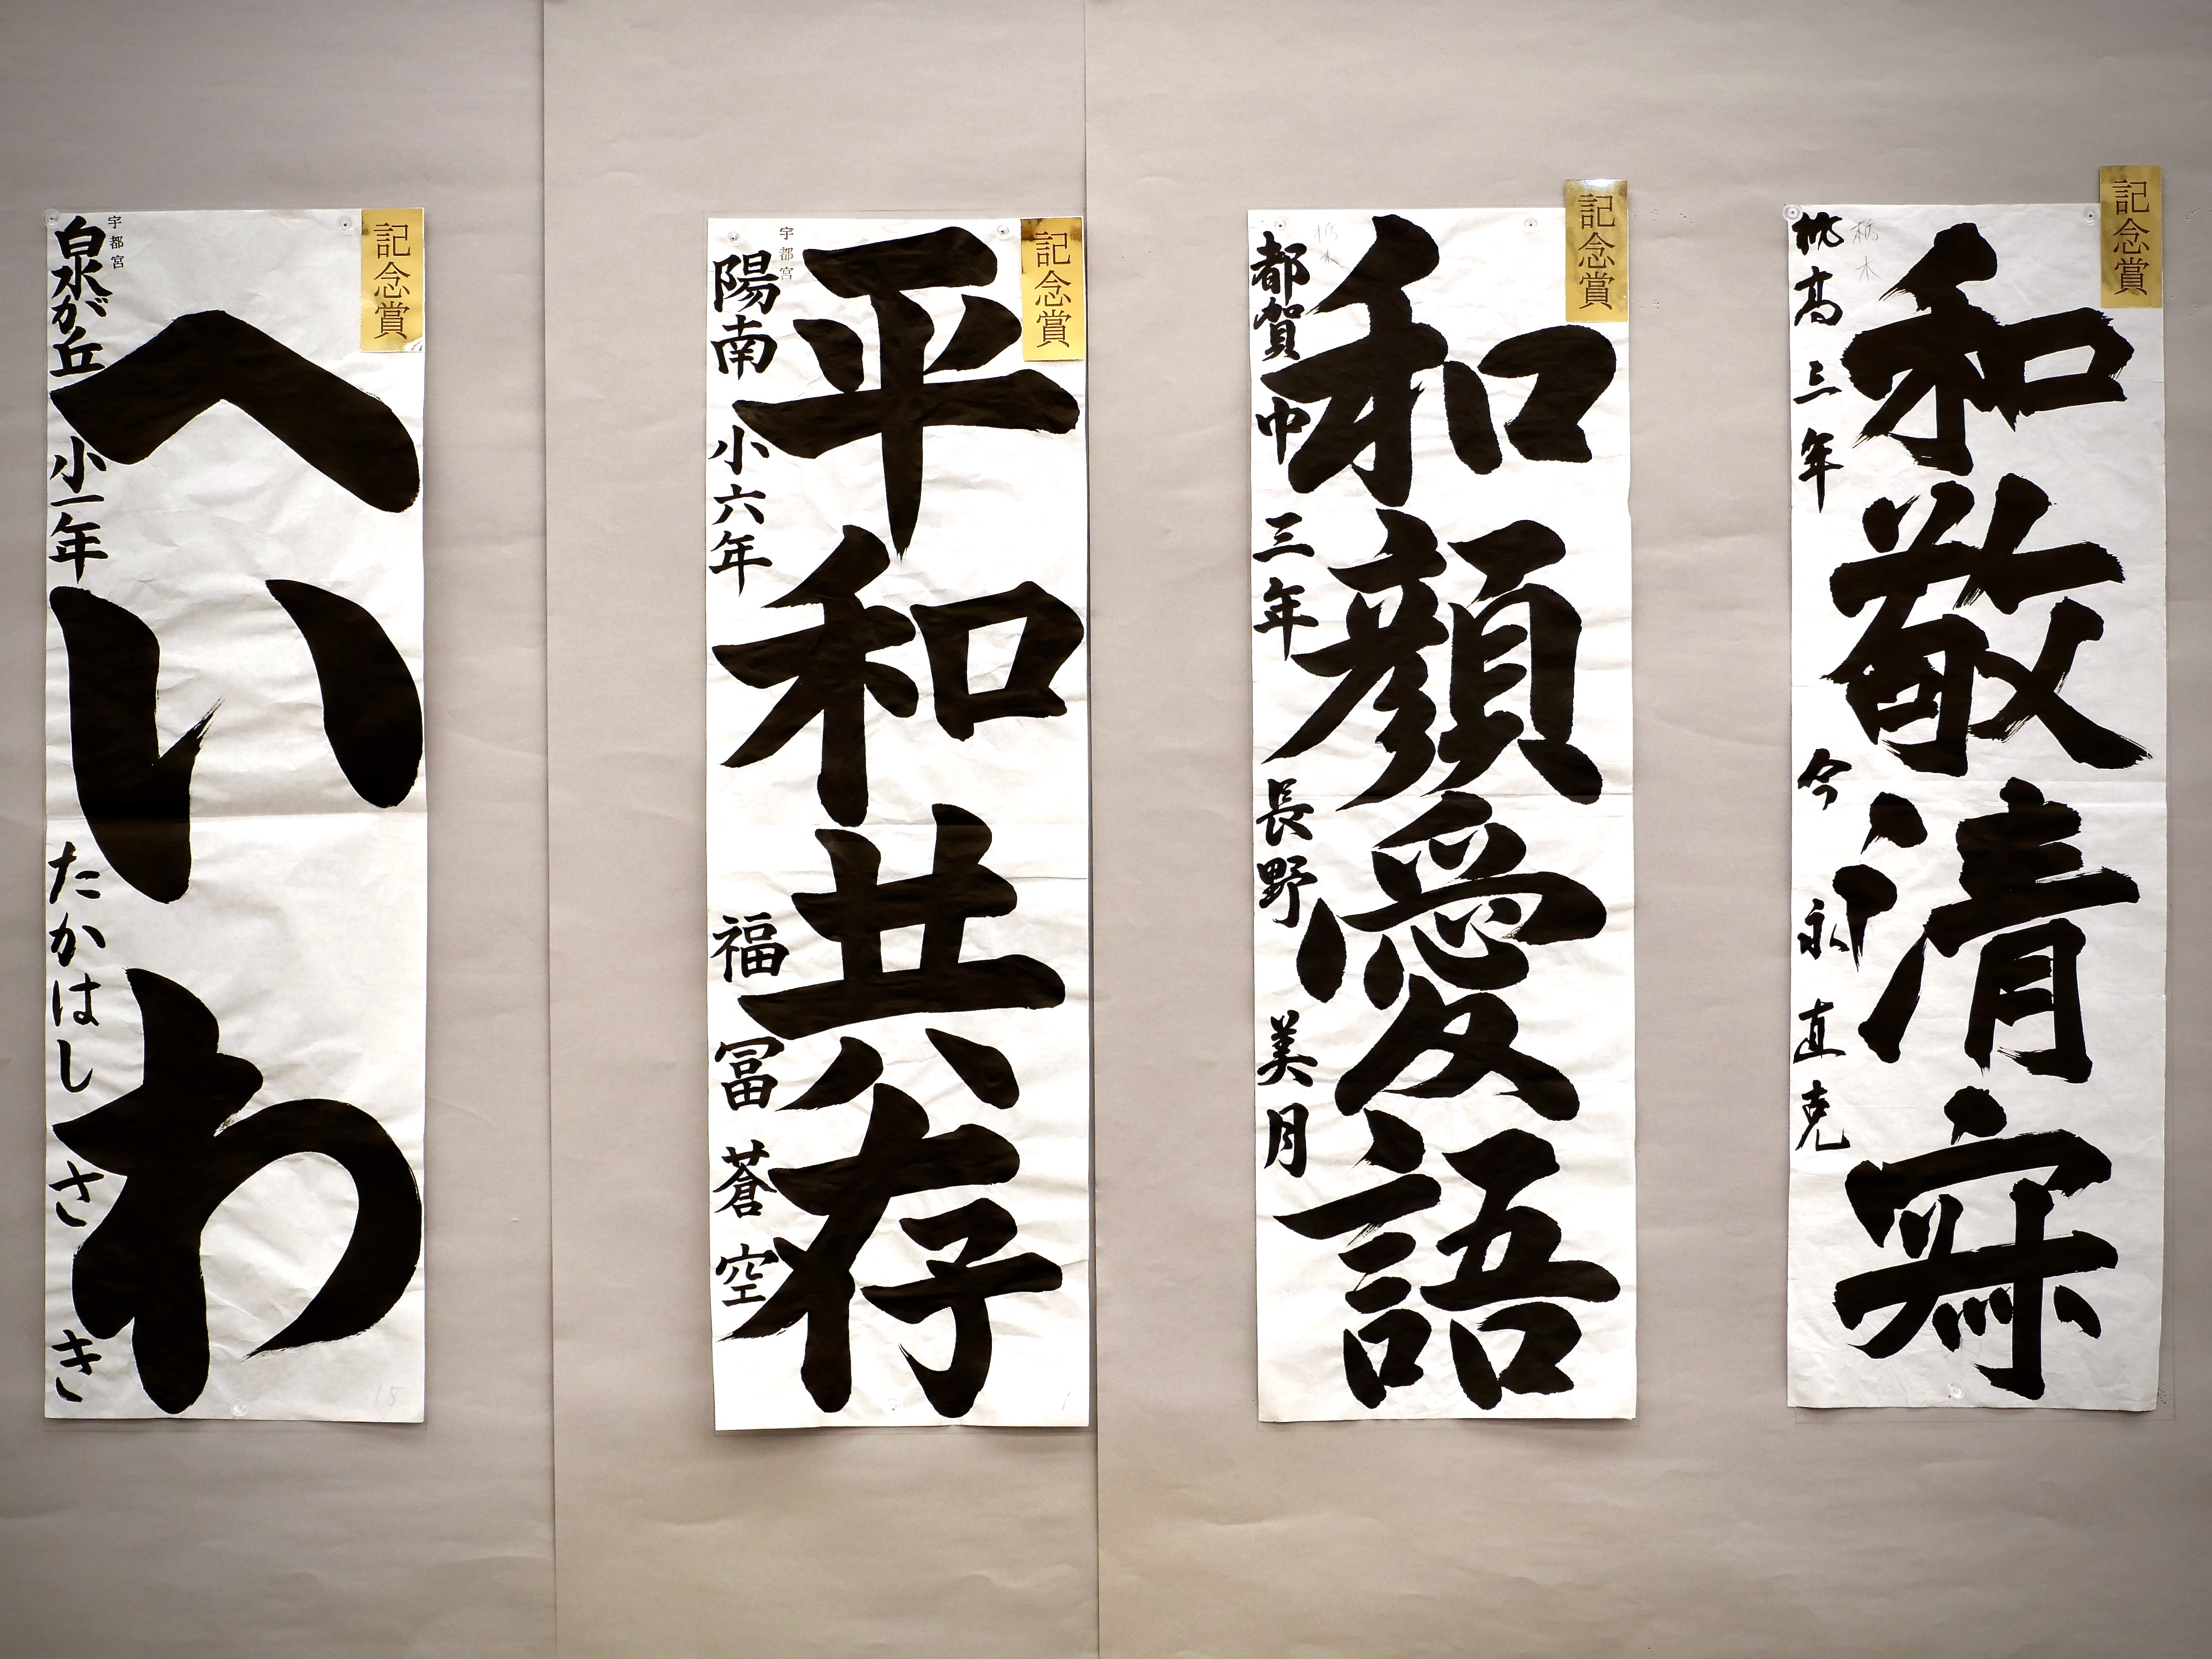 記念賞
和敬清寂
栃木
栃高三年 今永直克
記念賞
和顔愛語
栃木
都賀中三年 長野美月
記念賞
平和共存
宇都宮
陽南小六年 福冨蒼空
記念賞
へいわ
宇都宮
泉が丘小一年 たかはしさき
15